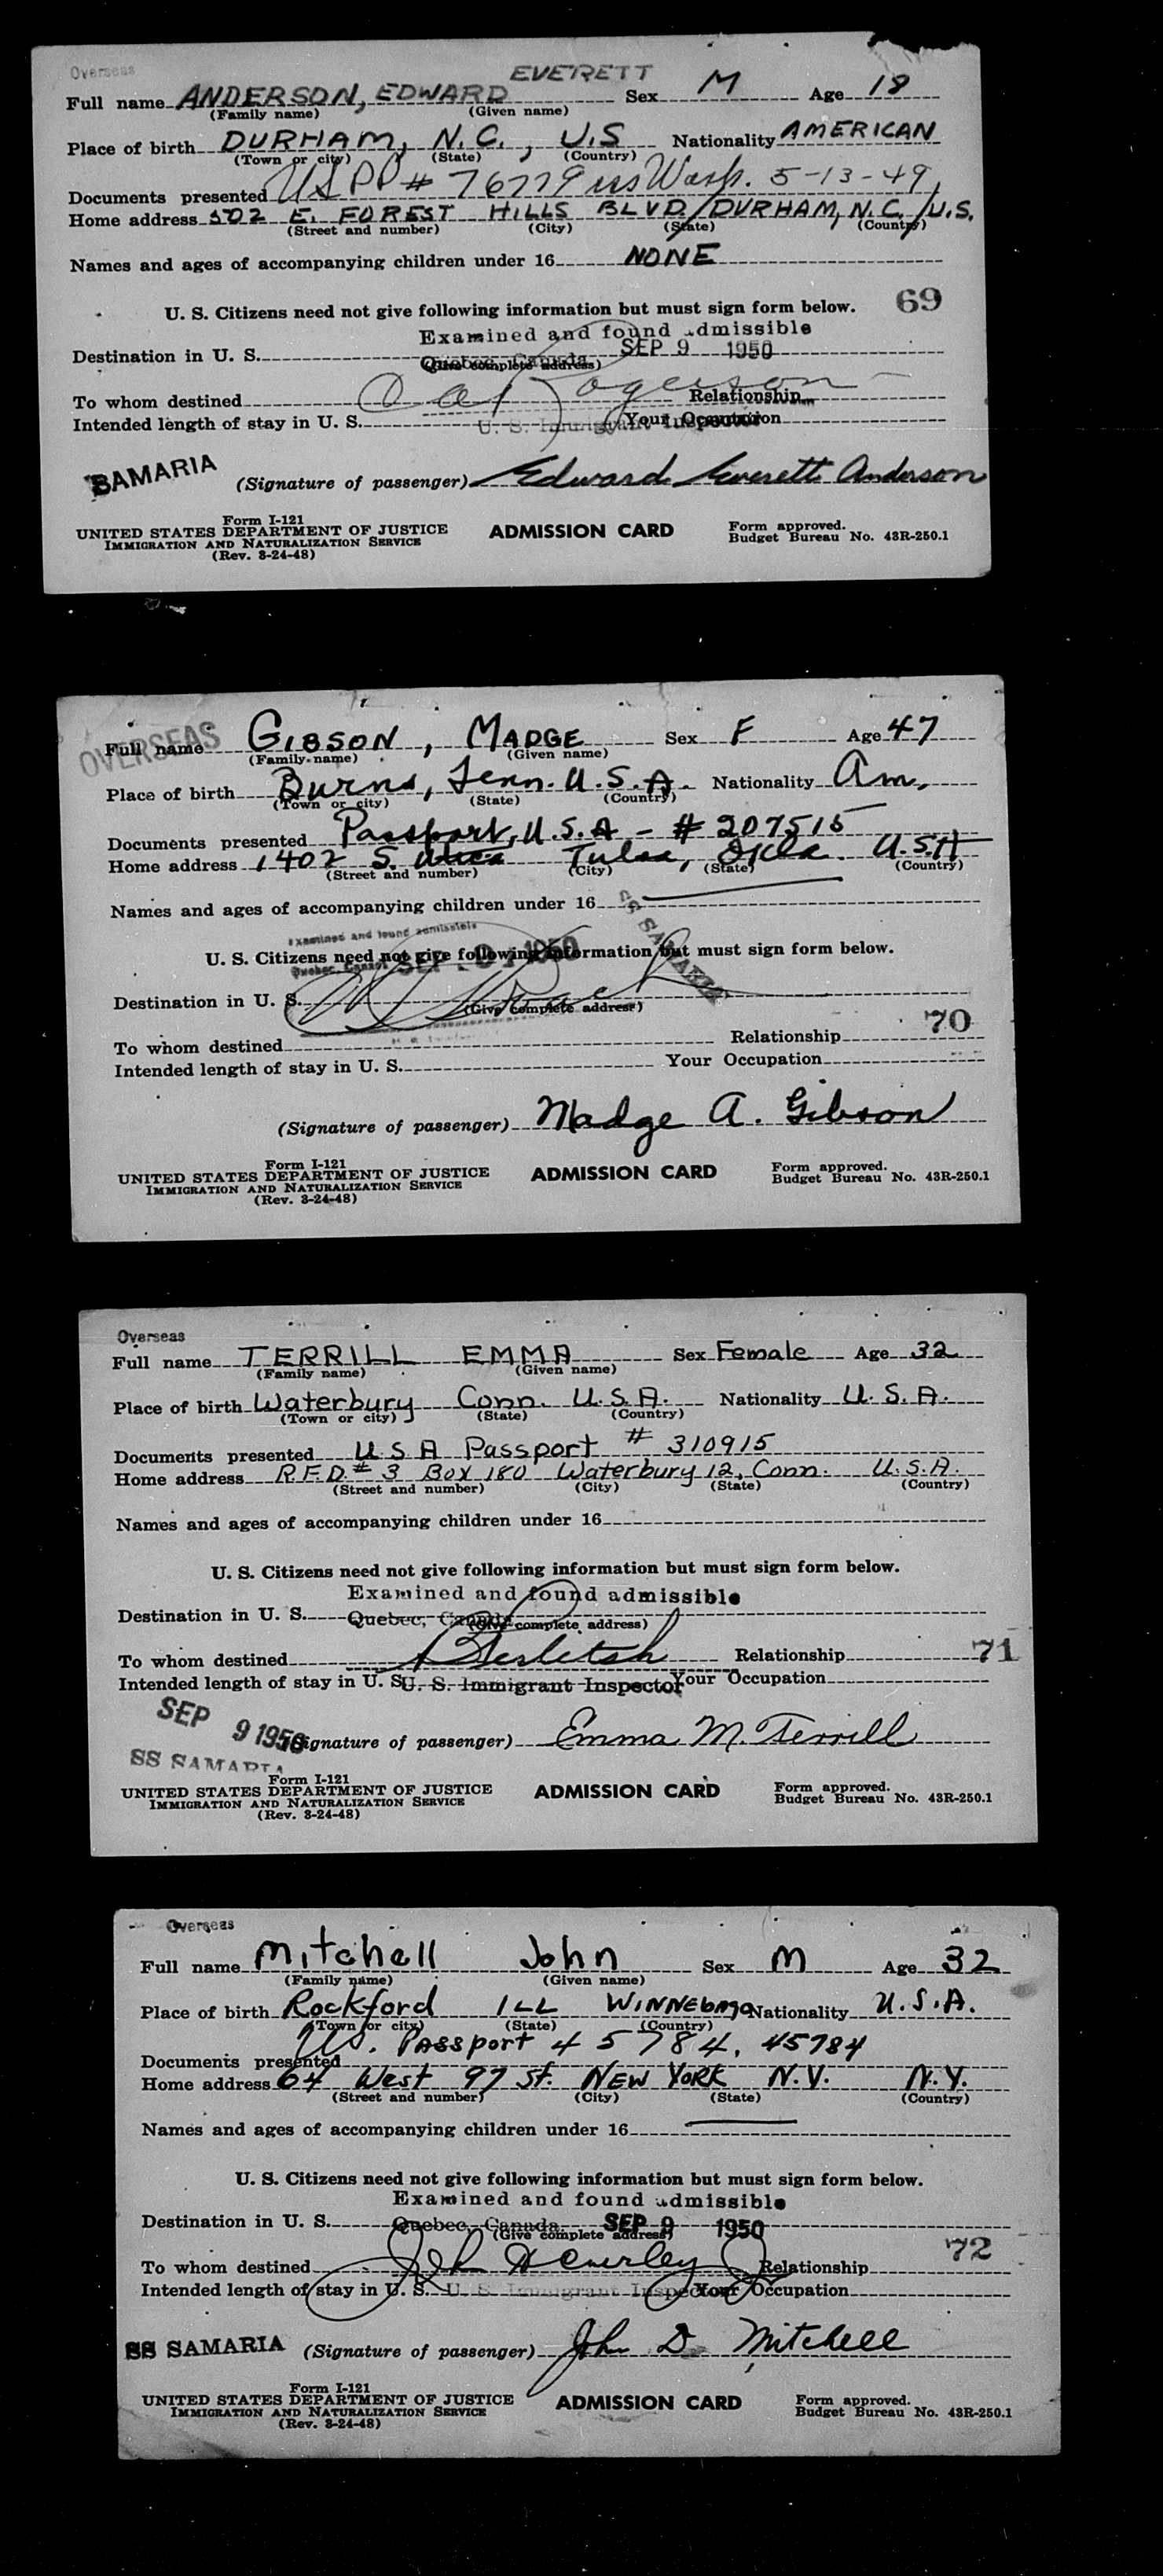 Overseas
EVERETT
Full name ANDERSON, EDWARD Sex M Age 18
(Family name) (Given name)
Place of birth DURHAM, N.C., U.S Nationality AMERICAN
(Town or city) (State) (Country)
Documents presented USPP # 76779 iss Wash. 5-13-49
Home address 502 E. FOREST HILLS BLVD/DURHAM, N.C./U.S.
(Street and number) (City) (State) (Country)
Names and ages of accompanying children under 16 NONE
U. S. Citizens need not give following information but must sign form below. 69
Examined and found admissible
Destination in U. S. SEP 9 1950
Quebec, Canada (Give complete address)
To whom destined Relationship
Intended length of stay in U. S. Your Occupation
U. S. Immigrant Inspector
SAMARIA (Signature of passenger) Edward Everett Anderson
Form I-121
UNITED STATES DEPARTMENT OF JUSTICE ADMISSION CARD Form approved.
IMMIGRATION AND NATURALIZATION SERVICE Budget Bureau No. 43R-250.1
(Rev. 3-24-48)
OVERSEAS
Full name GIBSON, MADGE Sex F Age 47
(Family name) (Given name)
Place of birth Burns, Tenn. U.S.A. Nationality Am.
(Town or city) (State) (Country)
Documents presented Passport, U.S.A - # 207515
Home address 1402 S. Utica Tulsa, Okla. U.S.A
(Street and number) (City) (State) (Country)
Names and ages of accompanying children under 16
Examined and found admissible
SS SAMARIA
U. S. Citizens need not give following information but must sign form below.
Quebec, Canada SEP 9 1950
Destination in U. S.
(Give complete address)
70
To whom destined Relationship
Intended length of stay in U. S. Your Occupation
(Signature of passenger) Madge A. Gibson
Form I-121
UNITED STATES DEPARTMENT OF JUSTICE ADMISSION CARD Form approved.
IMMIGRATION AND NATURALIZATION SERVICE Budget Bureau No. 43R-250.1
(Rev. 3-24-48)
Overseas
Full name TERRILL EMMA Sex Female Age 32
(Family name) (Given name)
Place of birth Waterbury Conn. U.S.A. Nationality U.S.A.
(Town or city) (State) (Country)
Documents presented U S A Passport # 310915
Home address R.F.D. # 3 Box 180 Waterbury 12, Conn. U.S.A.
(Street and number) (City) (State) (Country)
Names and ages of accompanying children under 16
U. S. Citizens need not give following information but must sign form below.
Examined and found admissible
Destination in U. S. Quebec, Canada
(Give complete address)
To whom destined Relationship 71
Intended length of stay in U. S. U. S. Immigrant Inspector Your Occupation
SEP 9 1950 (Signature of passenger) Emma M. Terrill
SS SAMARIA
Form I-121
UNITED STATES DEPARTMENT OF JUSTICE ADMISSION CARD Form approved.
IMMIGRATION AND NATURALIZATION SERVICE Budget Bureau No. 43R-250.1
(Rev. 3-24-48)
Overseas
Full name Mitchell John Sex M Age 32
(Family name) (Given name)
Place of birth Rockford ILL WINNEbago Nationality U.S.A.
(Town or city) (State) (Country)
Documents presented US. PASSport 45784, 45784
Home address 64 West 97 St. NEW YORK N.Y. N.Y.
(Street and number) (City) (State) (Country)
Names and ages of accompanying children under 16
U. S. Citizens need not give following information but must sign form below.
Examined and found admissible
Destination in U. S. Quebec, Canada SEP 9 1950
(Give complete address)
72
To whom destined Relationship
Intended length of stay in U. S. U. S. Immigrant Inspector Your Occupation
SS SAMARIA (Signature of passenger) John D Mitchell
Form I-121
UNITED STATES DEPARTMENT OF JUSTICE ADMISSION CARD Form approved.
IMMIGRATION AND NATURALIZATION SERVICE Budget Bureau No. 43R-250.1
(Rev. 3-24-48)